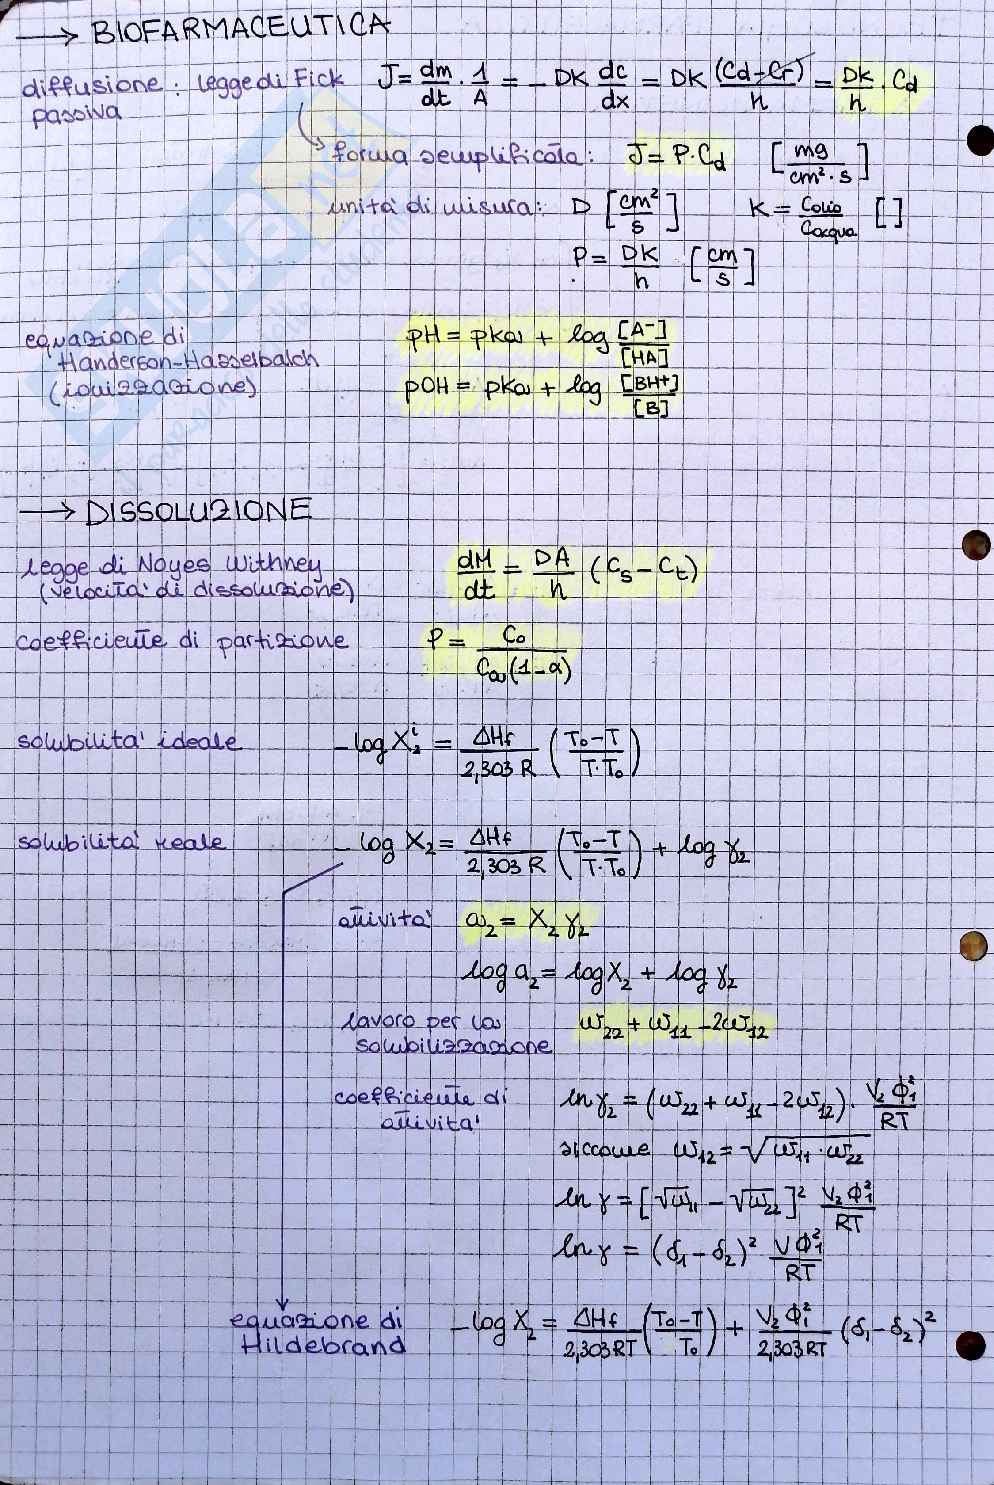 → BIOFARMACEUTICA
diffusione passiva : legge di Fick J = dm/dt · 1/A = - DK dc/dx = DK (Cd-Cr)/h = DK/h · Cd
forma semplificata: J = P·Cd [mg/cm²·s]
unità di misura: D [cm²/s] K = Colio/Cacqua [ ]
P = DK/h [cm/s]
equazione di Handerson-Hasselbalch (ionizzazione)
pH = pKa + log [A-]/[HA]
pOH = pKa + log [BH+]/[B]
→ DISSOLUZIONE
legge di Noyes Withney (velocità di dissoluzione) dM/dt = DA/h (Cs - Ct)
coefficiente di partizione P = Co/Ca(1-α)
solubilità ideale -log X₂ⁱ = ΔHf/2,303 R (To-T/T·To)
solubilità reale - log X₂ = ΔHf/2,303 R (To-T/T·To) + log γ₂
attività a₂ = X₂ γ₂
log a₂ = log X₂ + log γ₂
lavoro per la solubilizzazione ω₂₂ + ω₁₁ - 2ω₁₂
coefficiente di attività ln γ₂ = (ω₂₂ + ω₁₁ - 2ω₁₂) · V₂ Φ₁²/RT
siccome ω₁₂ = √ω₁₁·ω₂₂
ln γ = [√ω₁₁ - √ω₂₂]² V₂ Φ₁²/RT
ln γ = (δ₁ - δ₂)² VΦ₁²/RT
equazione di Hildebrand - log X₂ = ΔHf/2,303RT (To-T/To) + V₂ Φ₁²/2,303 RT (δ₁ - δ₂)²